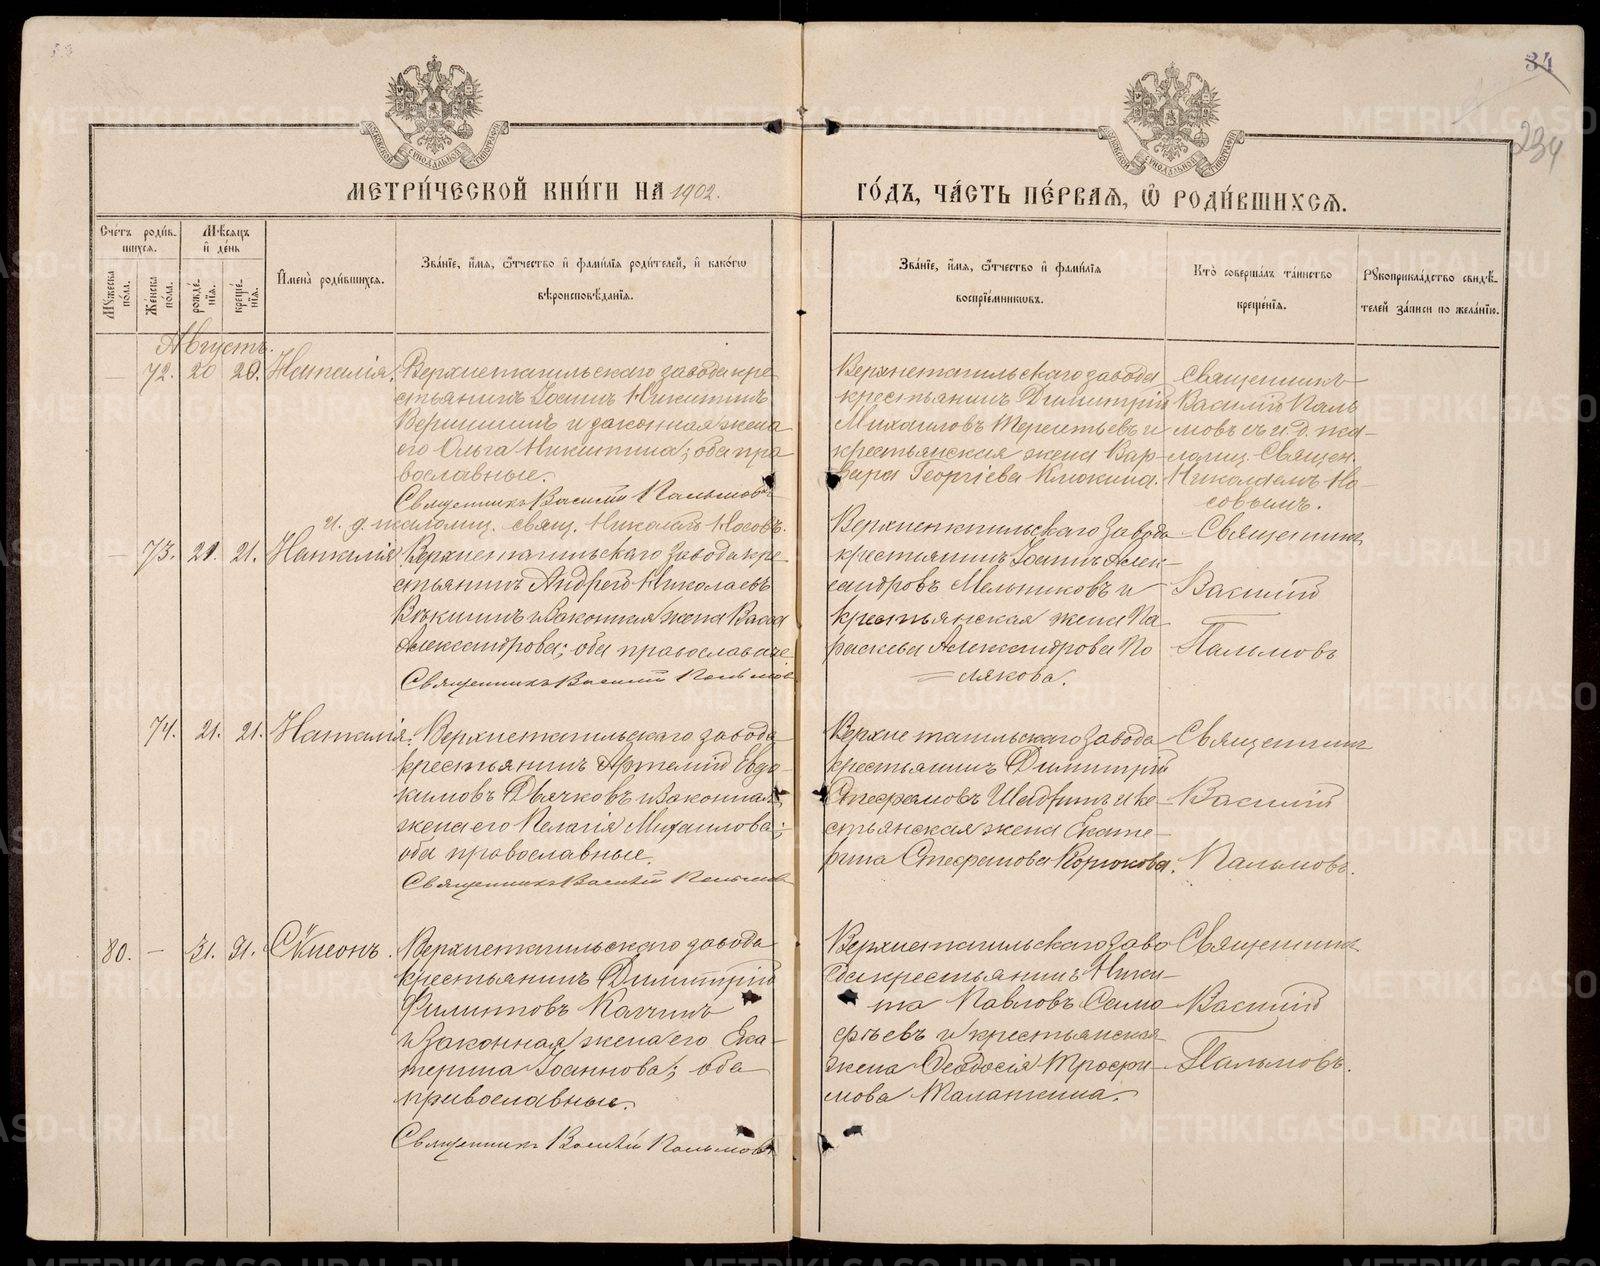 34
234
МЕТРИ́ЧЕСКОЙ КНИ́ГИ НА 1902.
ГО́ДЪ, ЧА́СТЬ ПЕ́РВАЯ, Ѡ҆ РОДИ́ВШИХСЯ.
Сче́тъ роди́в-
шихся.
Мꙋжеска по́ла.
Же́нска по́ла.
Мѣ́сяцъ
и҆ де́нь
рожде́-
нїя.
креще́-
нїя.
И҆мена̀ роди́вшихся.
Зва́нїе, и҆́мя, ѻ҆́тчество и҆ фами́лїя роди́телей, и҆ како́гѡ
вѣроисповѣ́данїя.
Зва́нїе, и҆́мя, ѻ҆́тчество и҆ фами́лїя
воспрїе́мникѡвъ.
Кто̀ соверша́лъ та́инство
креще́нїя.
Рꙋкоприкла́дство свидѣ́-
телей за́писи по жела́нїю.
Августъ.
— 72. 20 20. Наталія.
Верхнетагильскаго завода кре-
стьянинъ Іоаннъ Никитинъ
и законная жена
его Ольга Никитина; оба пра-
вославные.
Священникъ Василій Пальмовъ
и. д. псаломщ. свящ. Николай Носовъ.
Верхнетагильскаго завода
крестьянинъ Димитрій
Михаиловъ Терентьевъ и
крестьянская жена Вар-
вара Георгіева Клюкина.
Священникъ
Василій Паль
мовъ съ и. д. пса-
ломщ. Священ.
Николаемъ Но-
совымъ.
— 73. 21. 21. Наталія
Верхнетагильскаго завода кре-
стьянинъ Андрей Николаевъ
и законная жена Васса
Александрова; оба православные.
Священникъ Василій Пальмов
Верхнетагильскаго завода
крестьянинъ Іоаннъ Алек-
сандровъ Мельниковъ и
крестьянская жена Па-
раскева Александрова По
= лякова.
Священник
Василій
Пальмовъ
74. 21. 21. Наталія.
Верхнетагильскаго завода
крестьянинъ Артемій Евдо-
кимовъ Дьячковъ и законная
жена его Пелагія Михаилова;
оба православные.
Священникъ Василій Пальмов
Верхнетагильскаго завода
крестьянинъ Димитрій
Стефановъ и кре-
стьянская жена Екате-
рина Стефанова Корюкова.
Священник
Василій
Пальмовъ.
80. — 31. 31. Сѵмеонъ.
Верхнетагильскаго завода
крестьянинъ Димитрій
Филиповъ
и законная жена его Ека-
терина Іоаннова; оба
православные.
Священникъ Василій Пальмовъ
Верхнетагильскаго заво
да крестьянинъ Ники-
та Павловъ Само
фѣевъ и крестьянская
жена Ѳеодосія Трофи-
мова Таланкина.
Священник
Василій
Пальмовъ.